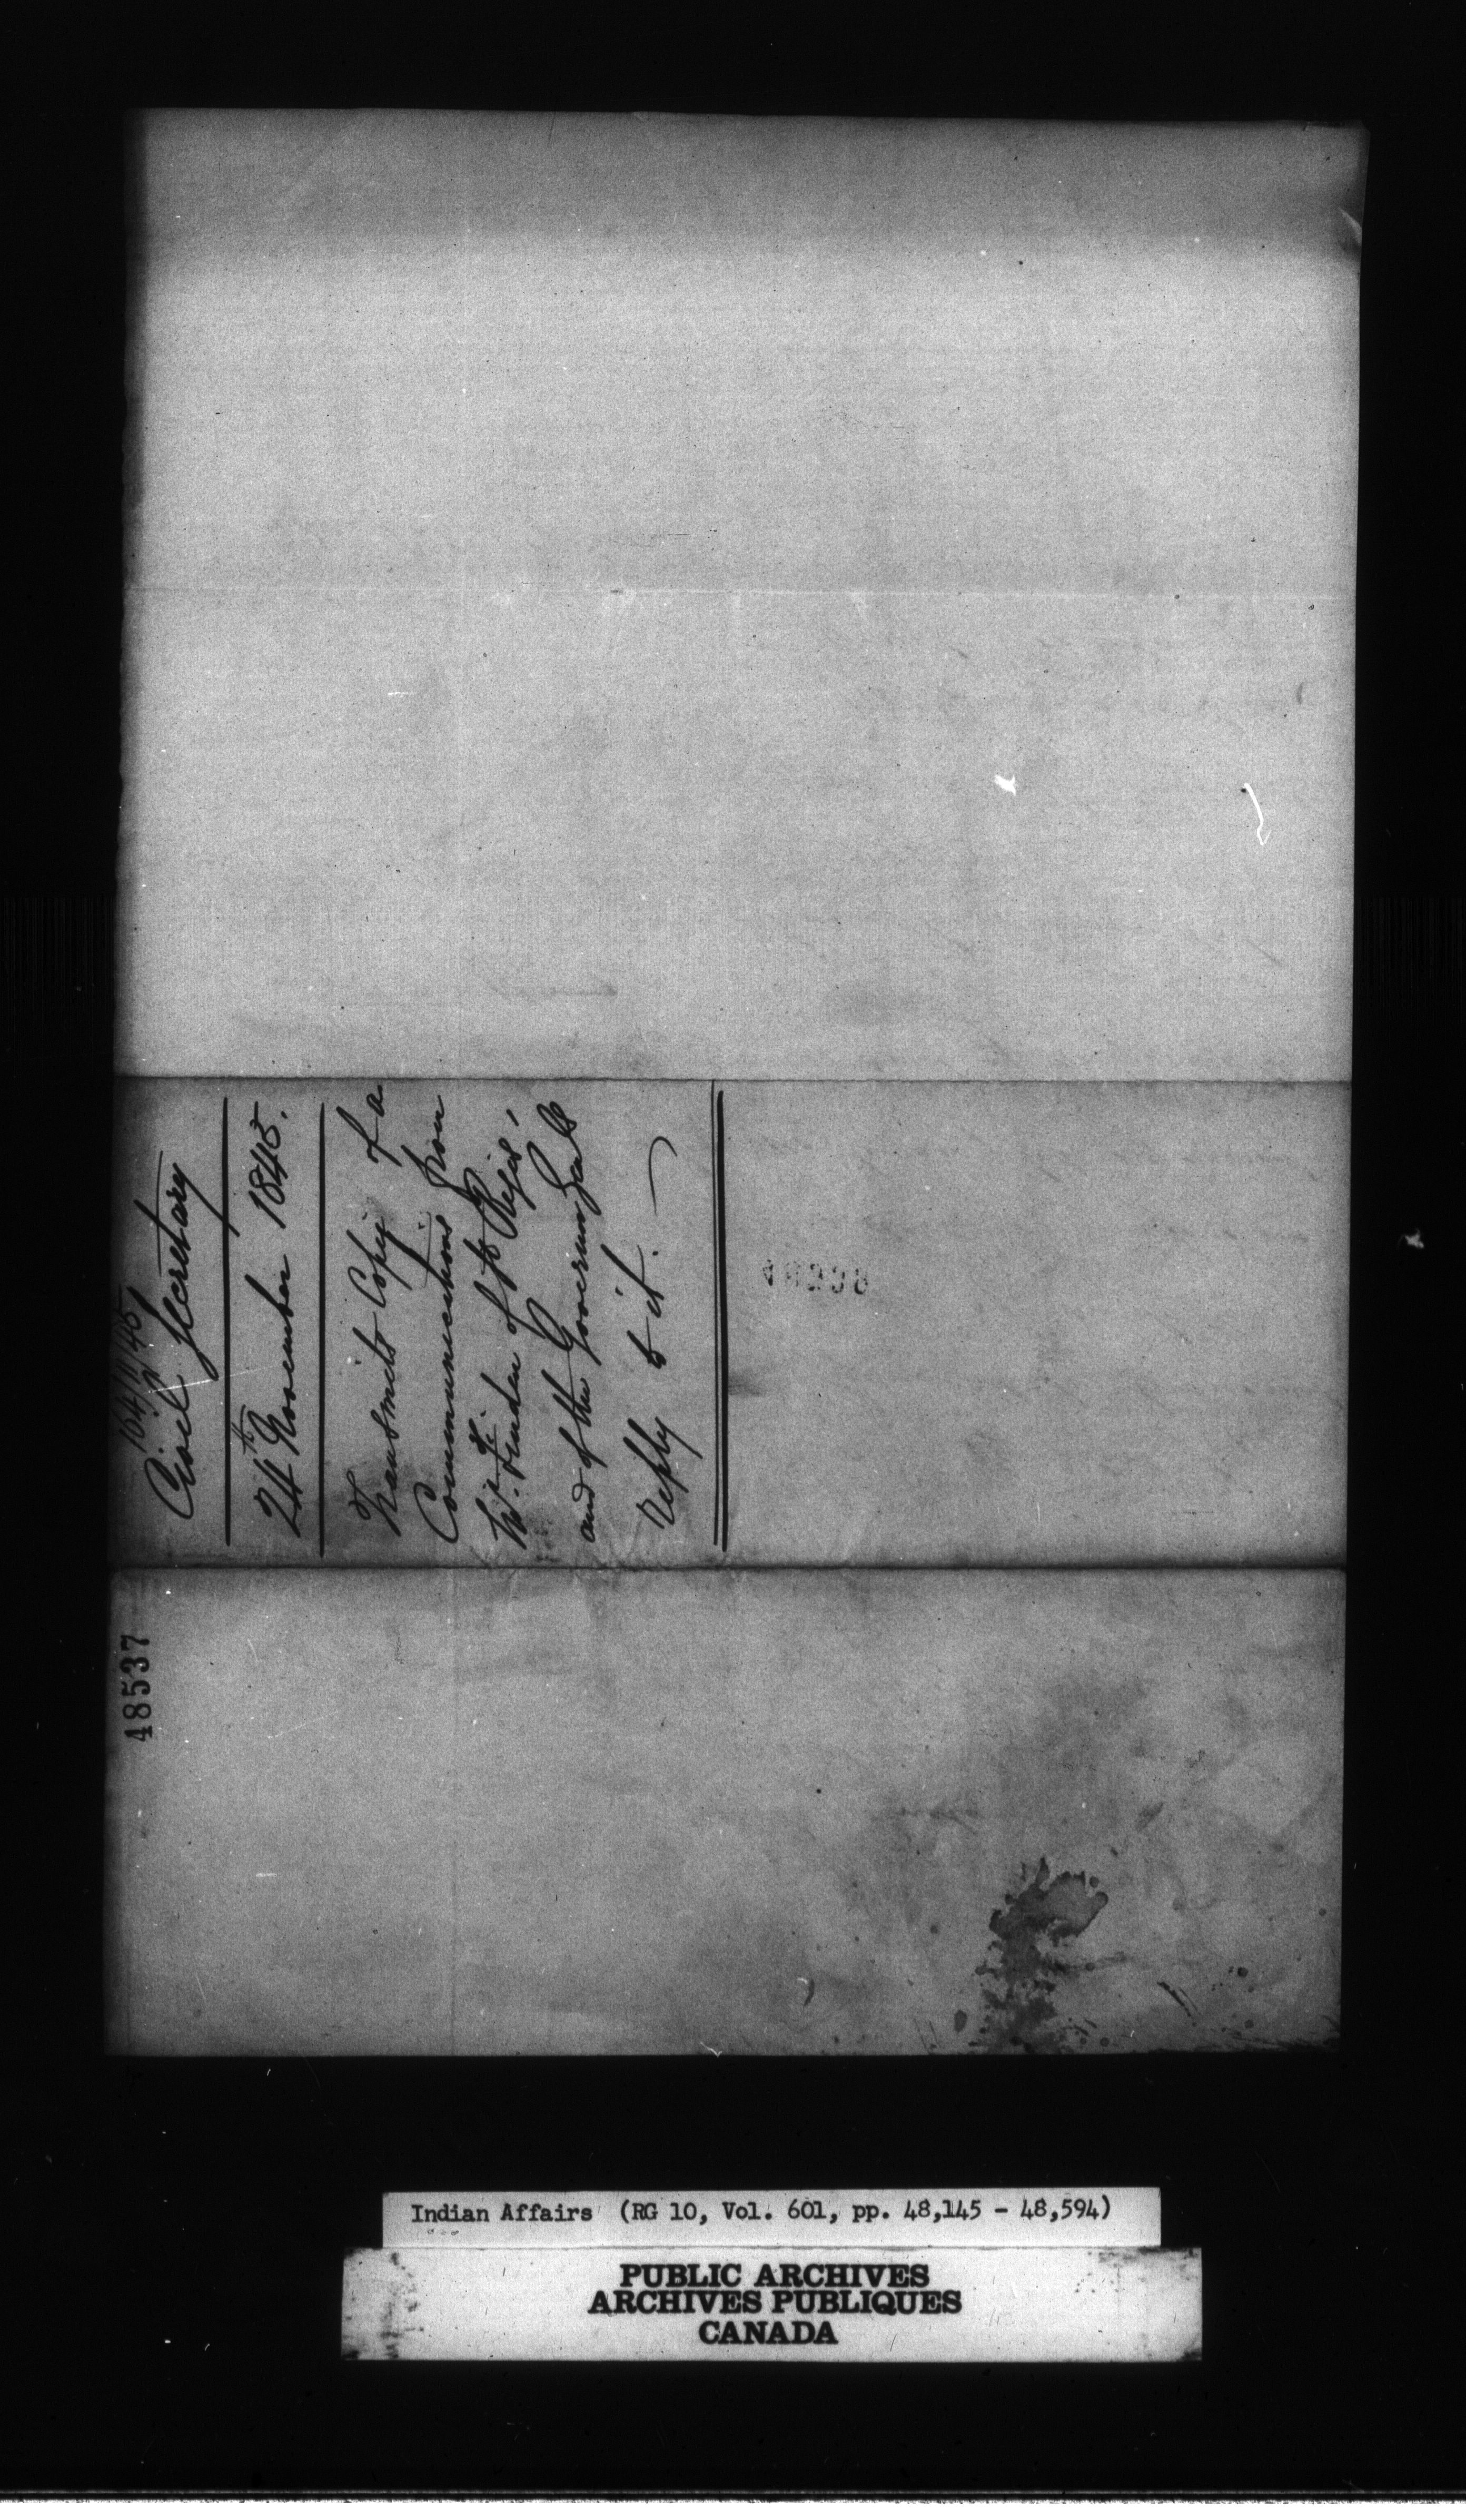 164/11/45
Civil Secretary
24th November 1845.
Transmits Copy of a
Communication from
of St Regis,
and of the Governor Genls
reply to it.
48537
Indian Affairs (RG 10, Vol. 601, pp. 48,145 - 48,594)
PUBLIC ARCHIVES
ARCHIVES PUBLIQUES
CANADA